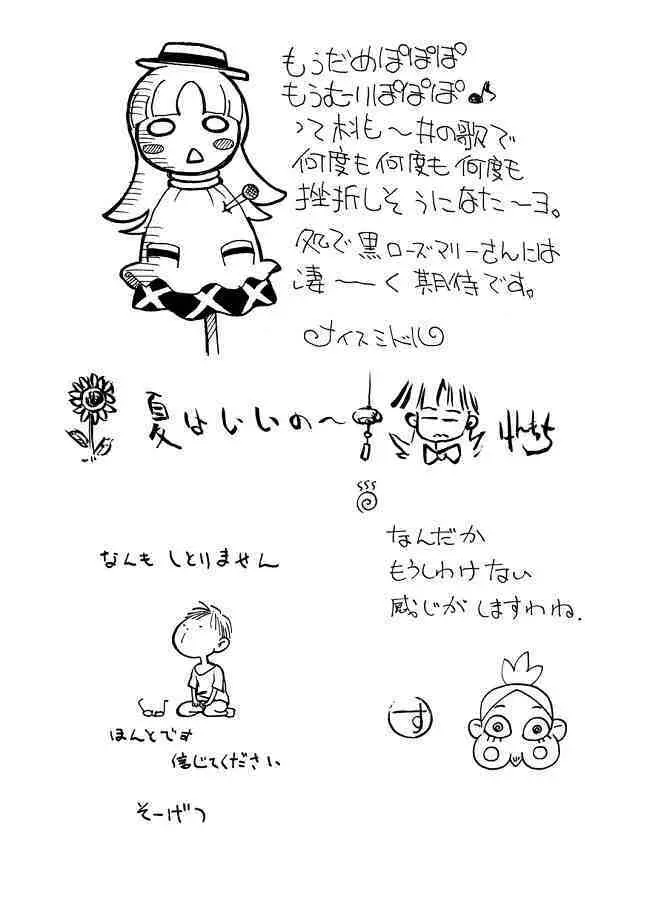 もうだめぽぽぽ
もうむりぽぽぽ♪
って桃〜井の歌で
何度も何度も何度も
挫折しそうになた〜ヨ。
処で黒ローズマリーさんには
凄〜く期待です。
ナイスミドル
夏はいいの〜
けんちち
なんも しとりません
なんだか
もうしわけない
感じがしますわね.
す
ほんとです
信じてください
そーげつ